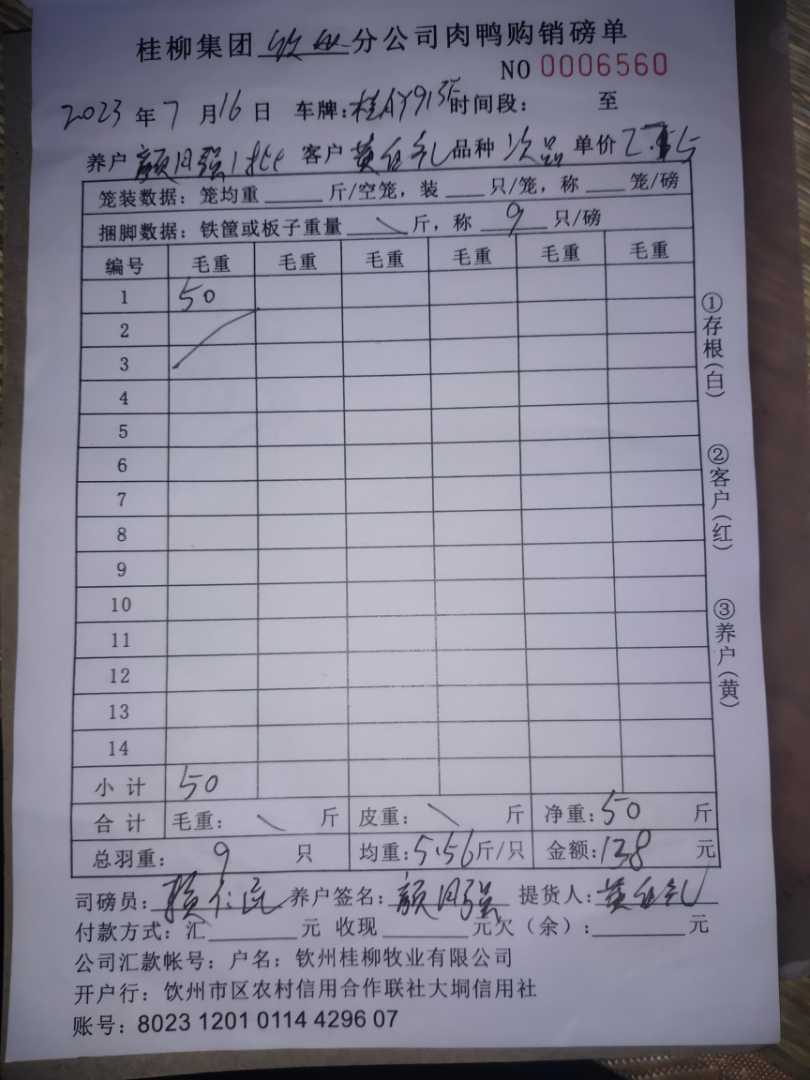 桂柳集团 钦州 分公司肉鸭购销磅单
NO 0006560
2023 年 7 月 16 日 车牌: 时间段: 至
养户 颜月强 客户 品种 次品 单价
笼装数据: 笼均重 斤/空笼, 装 只/笼, 称 笼/磅
捆脚数据: 铁筐或板子重量 \ 斤, 称 9 只/磅
编号 毛重 毛重 毛重 毛重 毛重 毛重
1 50
2
3
4
5
6
7
8
9
10
11
12
13
14
小 计 50
合 计 毛重: \ 斤 皮重: \ 斤 净重: 50 斤
总羽重: 9 只 均重: 5.56 斤/只 金额: 138 元
司磅员: 养户签名: 颜月强 提货人:
付款方式: 汇 元 收现 元欠(余): 元
公司汇款帐号: 户名: 钦州桂柳牧业有限公司
开户行: 钦州市区农村信用合作联社大垌信用社
账号: 8023 1201 0114 4296 07
①存根(白)
②客户(红)
③养户(黄)